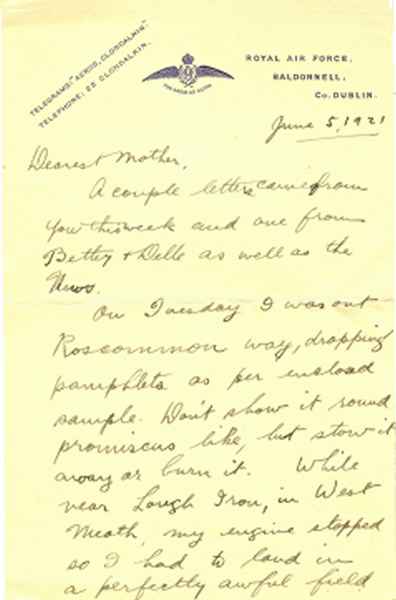 TELEGRAMS: "AEROS, CLONDALKIN."
TELEPHONE: 25 CLONDALKIN.
ROYAL AIR FORCE,
BALDONNELL,
Co. DUBLIN.
June 5, 1921
Dearest Mother,
A couple letters came from
you this week and one from
Betty + Delle as well as the
News.
On Tuesday I was out
Roscommon way, drapping
pamphlets as per enclosed
sample. Don't show it round
promiscus like, but stow it
away or burn it. While
near Lough Iron, in West
Meath, my engine stopped
so I had to land in
a perfectly awful field